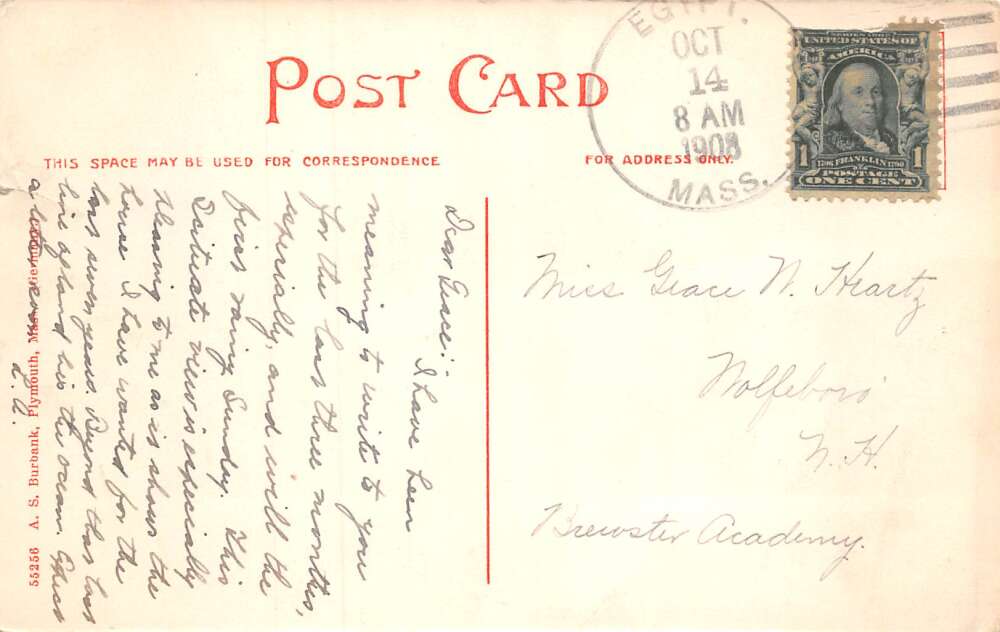 POST CARD
THIS SPACE MAY BE USED FOR CORRESPONDENCE
FOR ADDRESS ONLY.
EGYPT.
OCT
14
8 AM
1908
MASS.
SERIES 1902
UNITED STATES OF
AMERICA
1
1706 FRANKLIN 1790
POSTAGE
ONE CENT
1
Dear Grace:-
I have been
meaning to write to you
for the last three months,
especially, and will the
first rainy Sunday. This
Scituate view is especially
pleasing to me as is shows the
house I have wanted for the
last seven years. Beyond that last
line of land lies the ocean. Expect
a letter soon
Miss Grace N. Heartz
Wolfeboro
N. H.
Brewster Academy.
55256 A. S. Burbank, Plymouth, Mass.